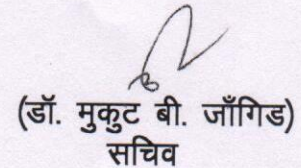 (डॉ. मुकुट बी. जाँगिड)
सचिव